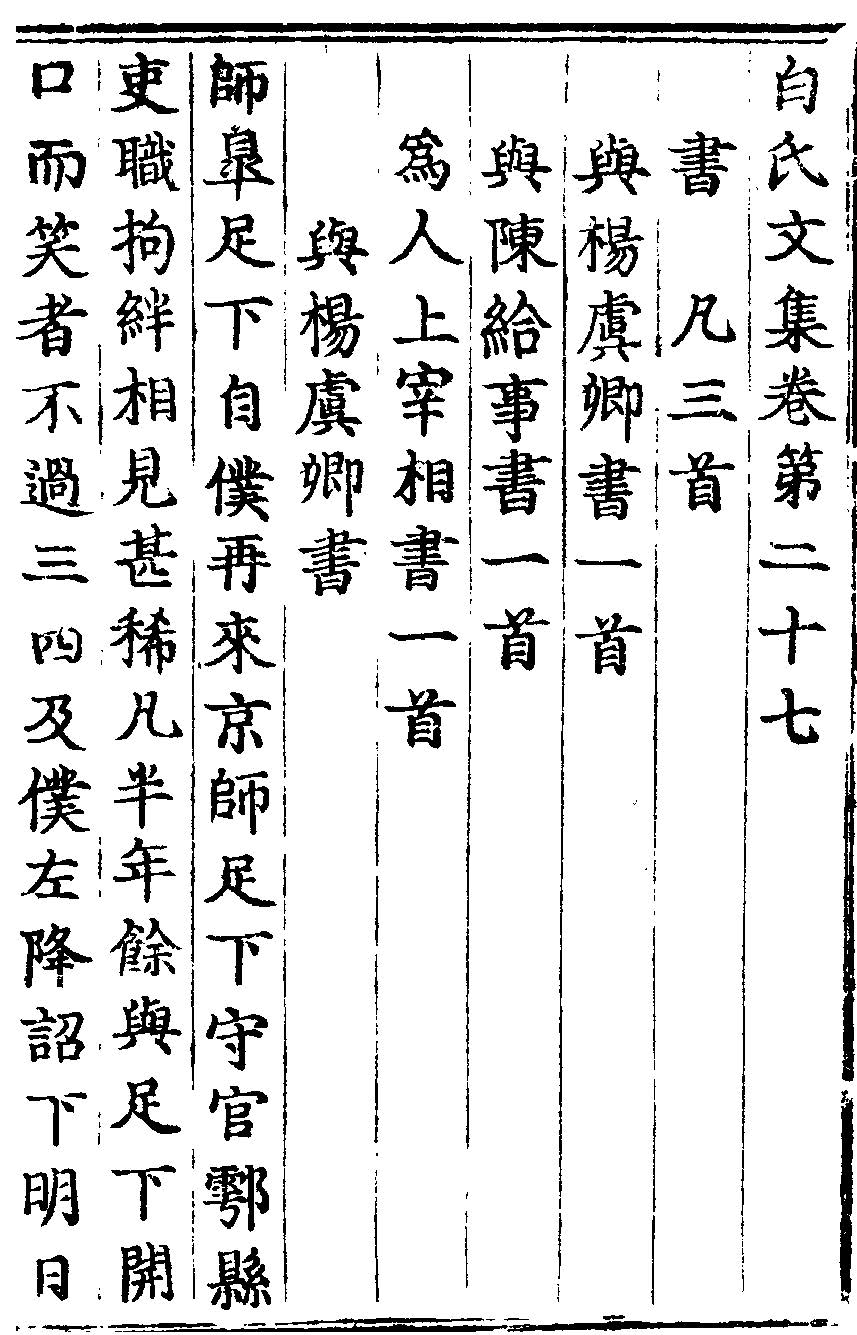 白氏文集卷第二十七
書 凡三首
與楊虞卿書一首
與陳給事書一首
為人上宰相書一首
與楊虞卿書
師皐足下自僕再來京師足下守官鄠縣
吏職拘絆相見甚稀凡半年餘與足下開
口而笑者不過三四及僕左降詔下明日